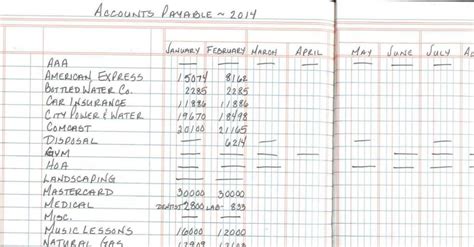 ACCOUNTS PAYABLE ~ 2014
JANUARY FEBRUARY MARCH APRIL MAY JUNE JULY
AAA — —
AMERICAN EXPRESS 15074 8162
BOTTLED WATER CO. 2285 2285
CAR INSURANCE 11886 11886
CITY POWER & WATER 19670 18498
COMCAST 20100 21165
DISPOSAL — 6214 — — — —
GVM — — — — — — —
HOA — — — — — —
LANDSCAPING — —
MASTERCARD 30000 30000
MEDICAL DENTIST 2800 LAB- 833
MISC. — —
MUSIC LESSONS 16000 12000
NATURAL GAS